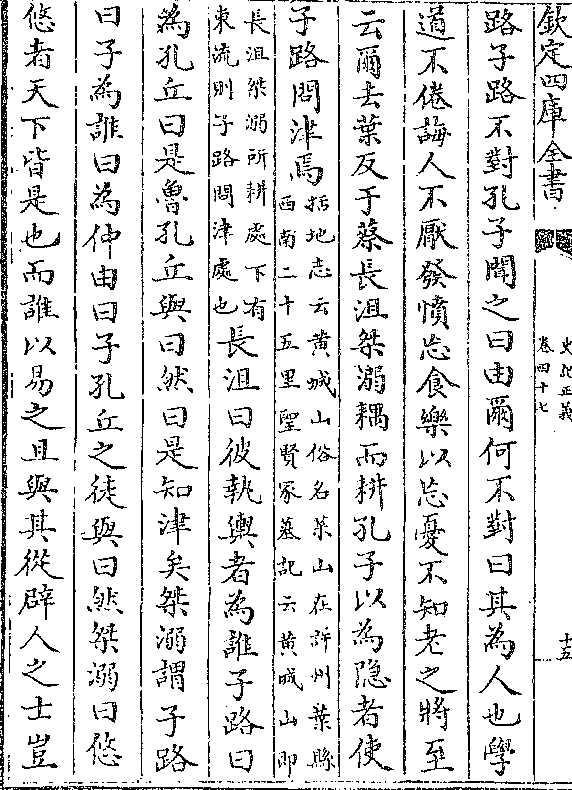 欽定四庫全書
史記正義
卷四十七
十五
路子路不對孔子聞之曰由爾何不對曰其為人也學
道不倦誨人不厭發憤忘食樂以忘憂不知老之將至
云爾去葉反于蔡長沮桀溺耦而耕孔子以為隐者使
子路問津焉
括地志云黄城山俗名菜山在許州葉縣
西南二十五里聖賢冡墓記云黄城山即
長沮桀溺所耕處下有
東流則子路問津處也
長沮曰彼執輿者為誰子路曰
為孔丘曰是魯孔丘與曰然曰是知津矣桀溺謂子路
曰子為誰曰為仲由曰子孔丘之徒與曰然桀溺曰悠
悠者天下皆是也而誰以易之且與其從辟人之士豈